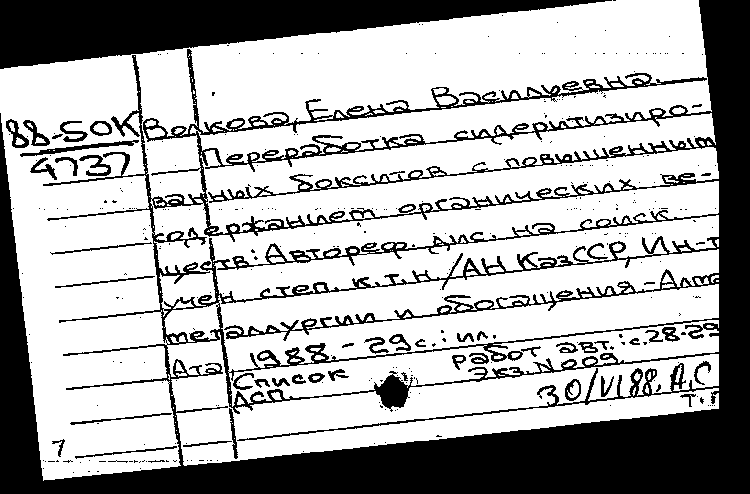 88-50K Волкова, Елена Васильевна.
4737 Переработка сидеритизиро-
ванных бокситов с повышенным
содержанием органических ве-
ществ: Автореф. дис. на соиск.
учен степ. к.т.н. /АН КазССР, Ин-т
металлургии и обогащения -Алма
Ата 1988. - 29 с. : ил.
Список работ авт.: с. 28-29
ДСП. Экз. N 009.
30/VI 88. А.С
Т. П
7